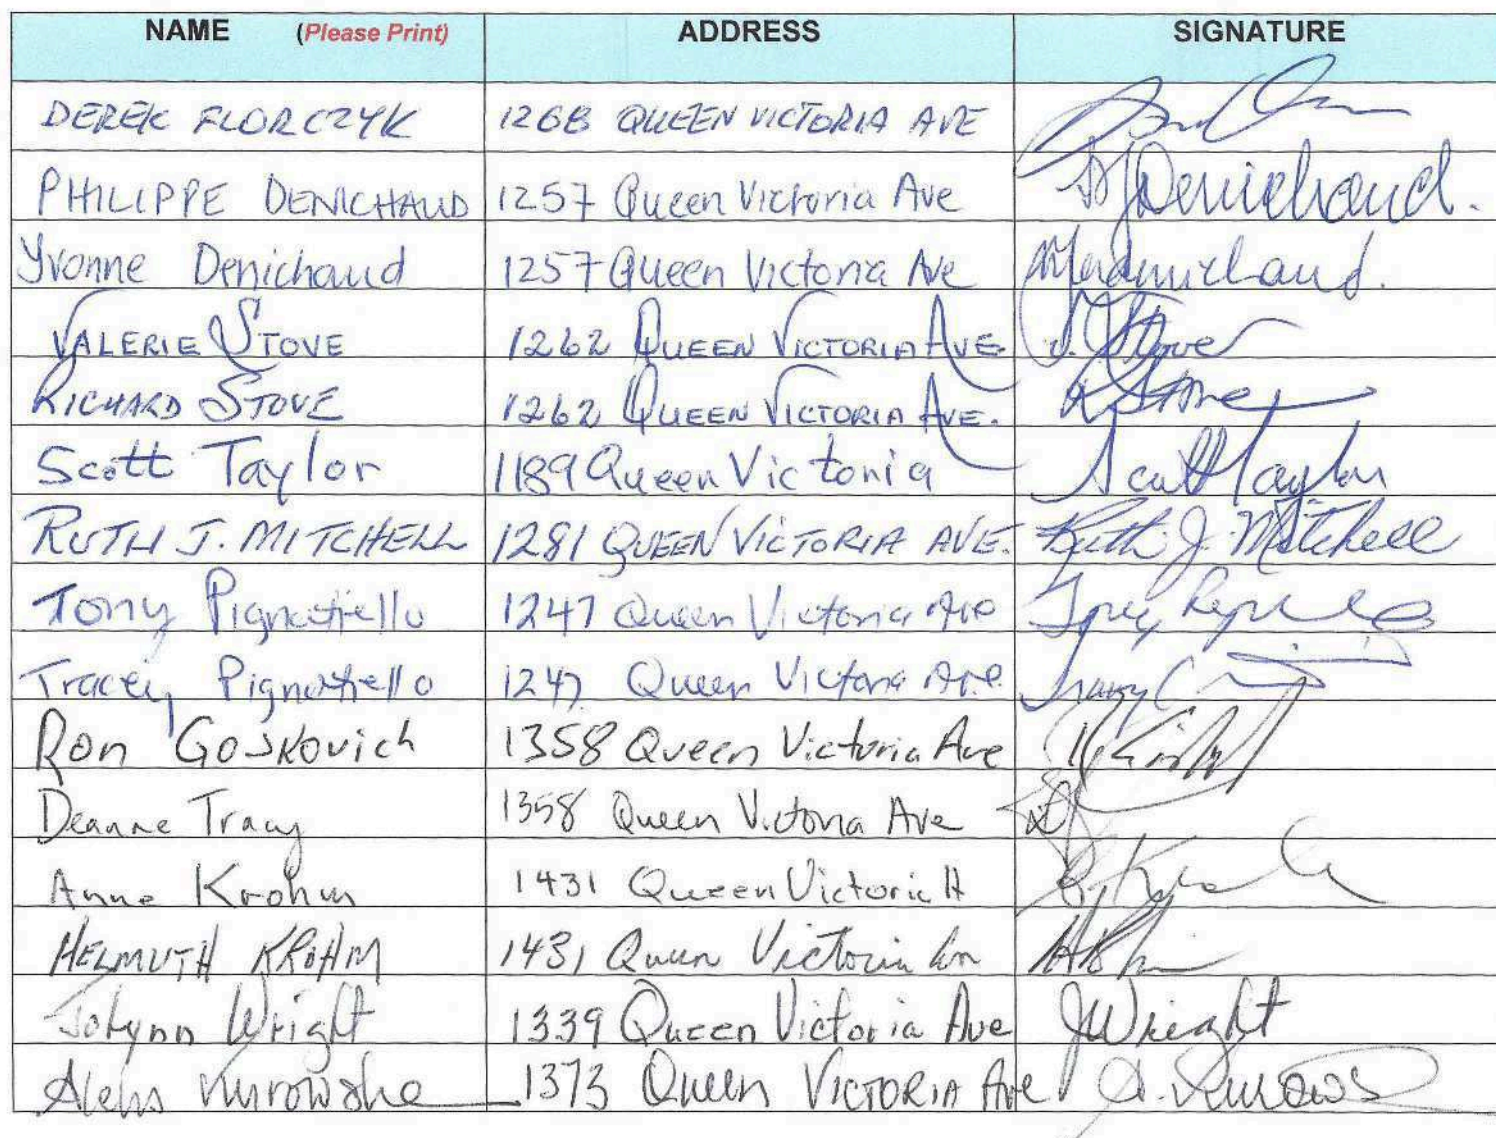 NAME (Please Print) ADDRESS SIGNATURE
DEREK FLORCZYK 1268 QUEEN VICTORIA AVE
PHILIPPE DENICHAUD 1257 Queen Victoria Ave Denichaud.
Yvonne Denichaud 1257 Queen Victoria Ave
VALERIE STOVE 1262 QUEEN VICTORIA AVE. V. Stove
RICHARD STOVE 1262 QUEEN VICTORIA AVE. R Stove
Scott Taylor 1189 Queen Victoria Scott Taylor
RUTH J. MITCHELL 1281 QUEEN VICTORIA AVE. Ruth J. Mitchell
Tony Pignatiello 1247 Queen Victoria Ave
Tracey Pignatiello 1247 Queen Victoria Ave.
Ron Goskovich 1358 Queen Victoria Ave
Deanne Tracy 1358 Queen Victoria Ave
Anne Krohm 1431 Queen Victoria
HELMUTH KROHM 1431 Queen Victoria
JoLynn Wright 1339 Queen Victoria Ave JWright
1373 Queen VICTORIA Ave